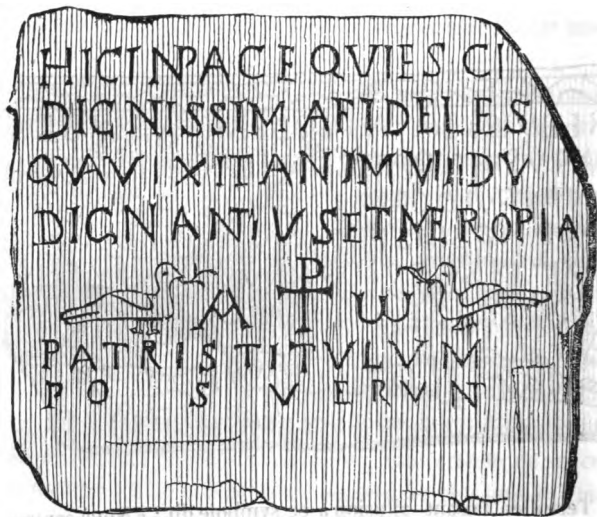 HIC IN PACE QVIESCI
DIGNISSIMA FIDELES
QVA VIXIT AN I M VII DV
DIGNANTIVS ET MEROPIA
A P ω
PATRIS TITVLVM
POSVERVN